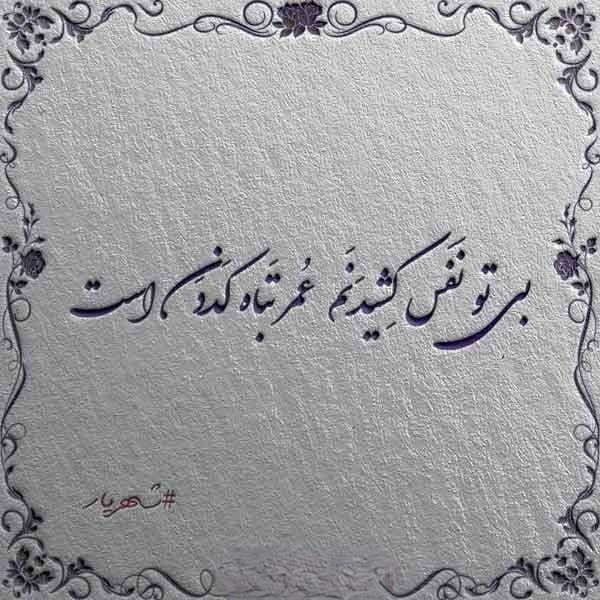 بی تو نَفَس کِشیدَنَم عُمر تَباه کَردَن است
#شهریار